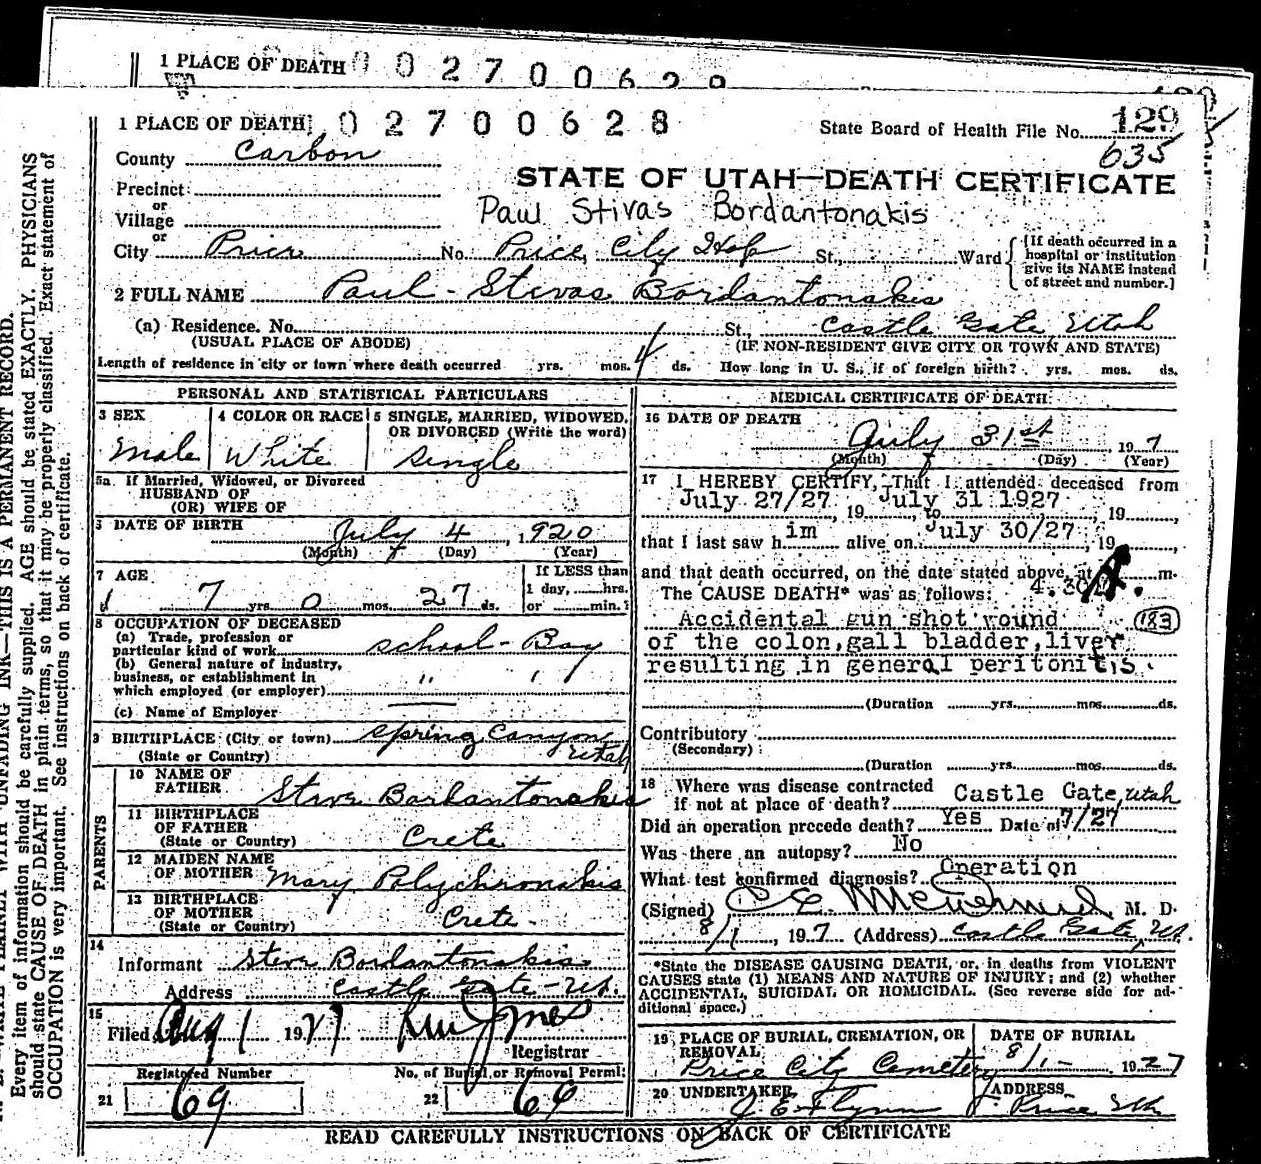 1 PLACE OF DEATH 0 0 2 7 0 0 6 2 9
1 PLACE OF DEATH 0 2 7 0 0 6 2 8
State Board of Health File No. 129
635
County Carbon
STATE OF UTAH—DEATH CERTIFICATE
Precinct
or
Village
Paul Stivas Bordantonakis
or
City Price No. Price City Hosp St., Ward
[If death occurred in a hospital or institution give its NAME instead of street and number.]
2 FULL NAME Paul - Stivas Bordantonakis
(a) Residence. No. St., Castle Gate, Utah
(USUAL PLACE OF ABODE) (IF NON-RESIDENT GIVE CITY OR TOWN AND STATE)
Length of residence in city or town where death occurred yrs. mos. 4 ds. How long in U. S., if of foreign birth? yrs. mos. ds.
PERSONAL AND STATISTICAL PARTICULARS
3 SEX 4 COLOR OR RACE 5 SINGLE, MARRIED, WIDOWED,
OR DIVORCED (Write the word)
Male White Single
5a If Married, Widowed, or Divorced
HUSBAND OF
(OR) WIFE OF
6 DATE OF BIRTH July 4, 1920
(Month) (Day) (Year)
7 AGE If LESS than
7 yrs 0 mos. 27 ds. 1 day, hrs.
or min.?
8 OCCUPATION OF DECEASED
(a) Trade, profession or
particular kind of work School-Boy
(b) General nature of industry,
business, or establishment in
which employed (or employer) " "
(c) Name of Employer
9 BIRTHPLACE (City or town) Spring Canyon
(State or Country) Utah
PARENTS
10 NAME OF
FATHER Steve Bordantonakis
11 BIRTHPLACE
OF FATHER
(State or Country) Crete
12 MAIDEN NAME
OF MOTHER Mary Polychronakis
13 BIRTHPLACE
OF MOTHER
(State or Country) Crete
14
Informant Steve Bordantonakis
Address Castle Gate - Ut.
15
Filed Aug 1 1927
Registrar
Registered Number No. of Burial or Removal Permit
21 69 22 69
MEDICAL CERTIFICATE OF DEATH
16 DATE OF DEATH
July 31st, 1927
(Month) (Day) (Year)
17 I HEREBY CERTIFY, That I attended deceased from
July 27/27, 19 to July 31 1927, 19
that I last saw h im alive on July 30/27, 19
and that death occurred, on the date stated above, at 4.30 A. m.
The CAUSE DEATH* was as follows:
Accidental gun shot wound 183
of the colon,gall bladder,liver
resulting in general peritonitis.
(Duration yrs. mos. ds.
Contributory
(Secondary)
(Duration yrs. mos. ds.
18 Where was disease contracted
if not at place of death? Castle Gate, Utah
Did an operation precede death? Yes Date of 7/27
Was there an autopsy? No
What test confirmed diagnosis? Operation
(Signed) M. D.
8/1, 1927 (Address) Castle Gate, Ut.
*State the DISEASE CAUSING DEATH, or, in deaths from VIOLENT
CAUSES state (1) MEANS AND NATURE OF INJURY; and (2) whether
ACCIDENTAL, SUICIDAL OR HOMICIDAL. (See reverse side for ad-
ditional space.)
19 PLACE OF BURIAL, CREMATION, OR DATE OF BURIAL
REMOVAL
Price City Cemetery 8/1- 1927
20 UNDERTAKER ADDRESS
J. E. Flynn Price Utah
READ CAREFULLY INSTRUCTIONS ON BACK OF CERTIFICATE
WRITE PLAINLY WITH UNFADING INK—THIS IS A PERMANENT RECORD.
Every item of information should be carefully supplied. AGE should be stated EXACTLY. PHYSICIANS
should state CAUSE OF DEATH in plain terms, so that it may be properly classified. Exact statement of
OCCUPATION is very important. See instructions on back of certificate.